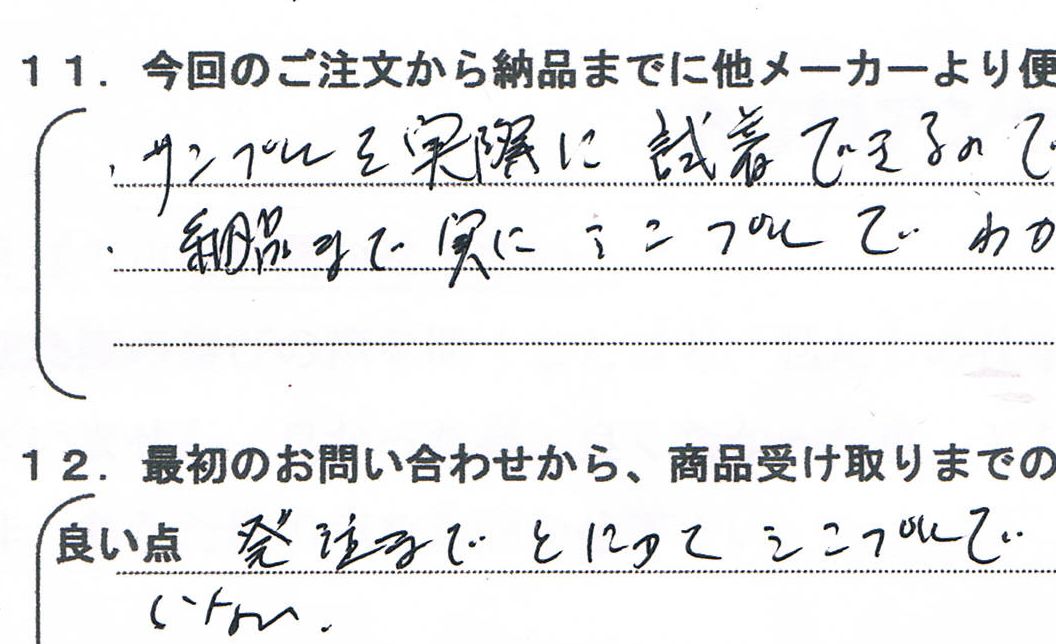 11．今回のご注文から納品までに他メーカーより便
・サンプルを実際に試着できるので
・納品まで実にシンプルで わか
12．最初のお問い合わせから、商品受け取りまでの
良い点 発注まで とにかく シンプルで